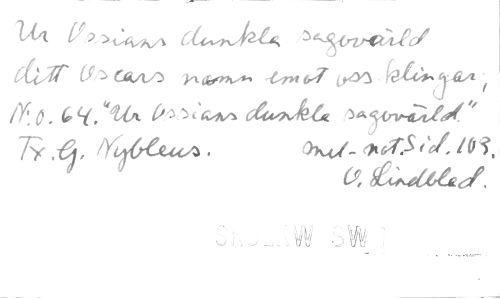 Ur Ossians dunkla sagovärld
ditt Oscars namn emot oss klingar,
N:o. 64. "Ur Ossians dunkla sagovärld."
Tx. G. Nybleus. mel-not. Sid. 103.
O. Lindblad.